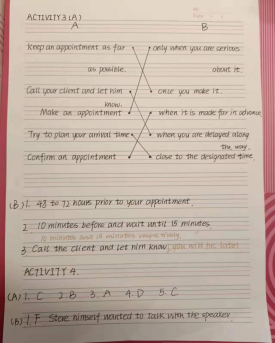 ACTIVITY 3 (A)
A B
Keep an appointment as far only when you are serious
as possible. about it.
Call your client and let him once you make it.
know.
Make an appointment when it is made far in advance
Try to plan your arrival time when you are delayed along
the way.
Confirm an appointment close to the designated time.
(B) 1. 48 to 72 hours prior to your appointment.
2. 10 minutes before and wait until 15 minutes
10 minutes and 15 minutes
3. Call the client and let him know you will be later
ACTIVITY 4.
(A) 1. C 2. B 3. A 4. D 5. C
(B) 1. F Steve himself wanted to talk with the speaker.